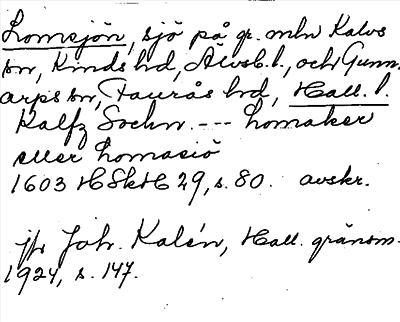 Lomsjön, sjö på gr. mln Kalvs
sn, Kinds hd, Älvsb. l., och Gunn-
arps sn, Faurås hd, Hall. l.
Kalfz Sochn. --- homaker
eller homasiö
1603 HSkH 29, s. 80. avskr.
jfr Joh. Kalén, Hall. gränsm.
1924, s. 147.